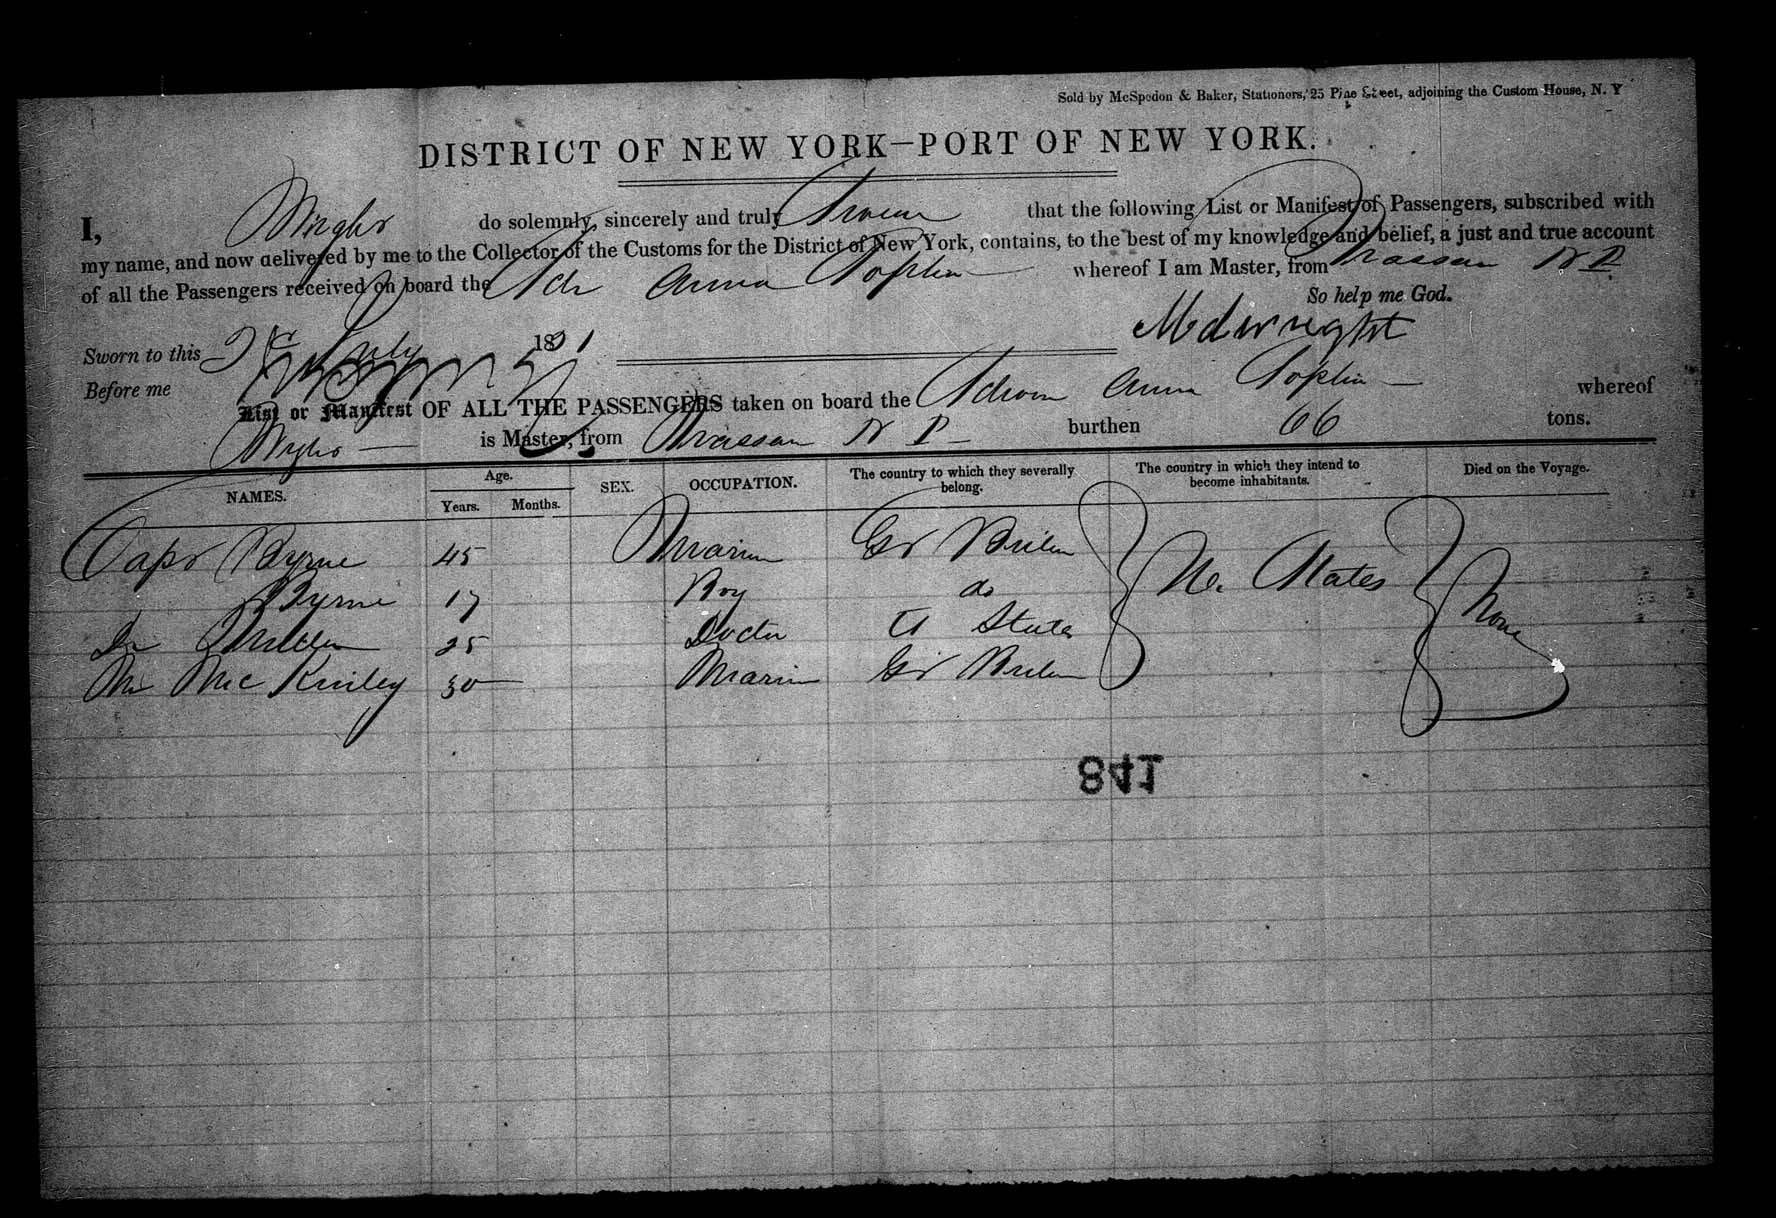 Sold by McSpedon & Baker, Stationers, 25 Pine Street, adjoining the Custom House, N. Y
DISTRICT OF NEW YORK—PORT OF NEW YORK.
I, Wright do solemnly, sincerely and truly Swear that the following List or Manifest of Passengers, subscribed with
my name, and now delivered by me to the Collector of the Customs for the District of New York, contains, to the best of my knowledge and belief, a just and true account
of all the Passengers received on board the Schr Anna Sophia whereof I am Master, from Nassau N P
So help me God.
Sworn to this July 1851
M d wright
Before me
List or Manifest OF ALL THE PASSENGERS taken on board the Schoon Anna Sophia whereof
Wright is Master, from Nassau N P burthen 66 tons.
NAMES. Age. Years. Months. SEX. OCCUPATION. The country to which they severally belong. The country in which they intend to become inhabitants. Died on the Voyage.
Capt Byrne 45 Marin Gt Britn U. States None
Byrne 17 Boy do
Dr 25 Doctor U States
Mr Mc Kinley 30 Marin Gt Britn
841